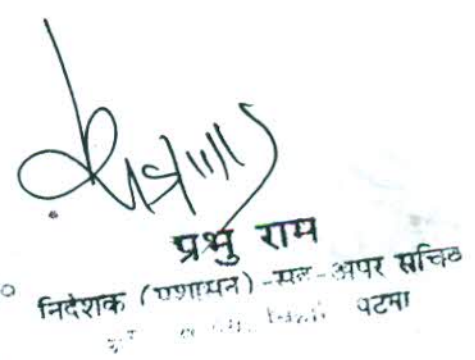 प्रभु राम
निदेशक (प्रशासन) -सह- अपर सचिव
पटना